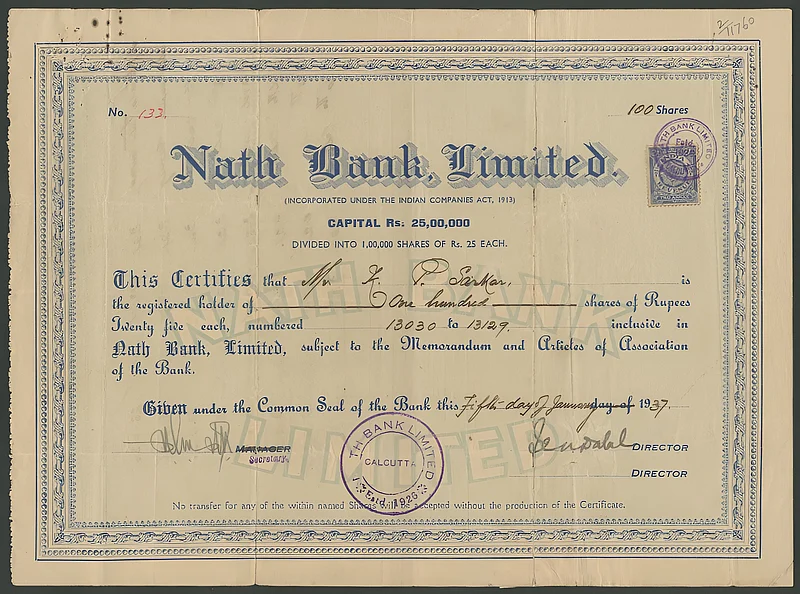 2/11760
No. 133.
100 Shares
NATH BANK LIMITED
Estd.
Nath Bank, Limited.
(INCORPORATED UNDER THE INDIAN COMPANIES ACT, 1913)
CAPITAL Rs: 25,00,000
DIVIDED INTO 1,00,000 SHARES OF Rs. 25 EACH.
This Certifies that Mr. K. P. Sarkar, is
the registered holder of One hundred shares of Rupees
Twenty five each, numbered 13030 to 13129. inclusive in
Nath Bank, Limited, subject to the Memorandum and Articles of Association
of the Bank.
NATH BANK
LIMITED
Given under the Common Seal of the Bank this Fifth day of January day of 1937.
MANAGER
Secretary.
TH BANK LIMITED
CALCUTTA
Estd. 1926
DIRECTOR
DIRECTOR
No transfer for any of the within named Shares will be accepted without the production of the Certificate.